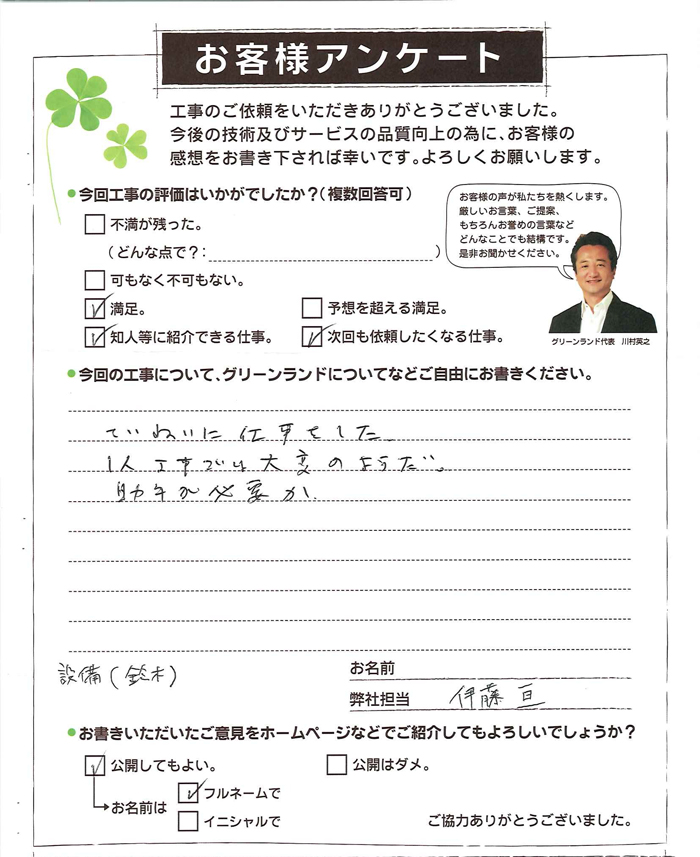 お客様アンケート
工事のご依頼をいただきありがとうございました。
今後の技術及びサービスの品質向上の為に、お客様の
感想をお書き下されば幸いです。よろしくお願いします。
●今回工事の評価はいかがでしたか？（複数回答可）
不満が残った。
（どんな点で？：）
可もなく不可もない。
満足。
予想を超える満足。
知人等に紹介できる仕事。
次回も依頼したくなる仕事。
お客様の声が私たちを熱くします。
厳しいお言葉、ご提案、
もちろんお誉めの言葉など
どんなことでも結構です。
是非お聞かせください。
グリーンランド代表 川村英之
●今回の工事について、グリーンランドについてなどご自由にお書きください。
ていねいに仕事をした
1人工事では大変のようだ。
助手が必要か.
設備(鈴木)
お名前
弊社担当 伊藤 亘
●お書きいただいたご意見をホームページなどでご紹介してもよろしいでしょうか？
公開してもよい。
公開はダメ。
お名前は
フルネームで
イニシャルで
ご協力ありがとうございました。